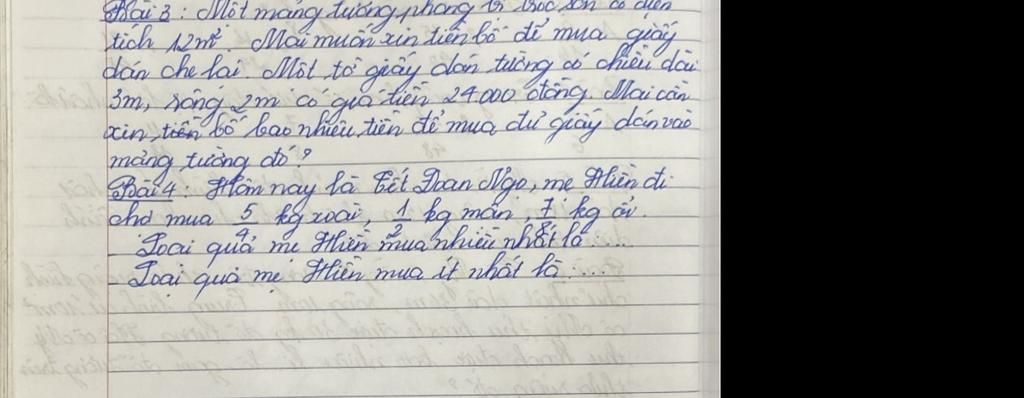 Bài 3: Một mảng tường phòng bị tróc sơn có diện
tích 12m². Mai muốn xin tiền bố để mua giấy
dán che lại. Một tờ giấy dán tường có chiều dài
3m, rộng 2m có giá tiền 24000 đồng. Mai cần
xin tiền bố bao nhiêu tiền để mua đủ giấy dán vào
mảng tường đó?
Bài 4: Hôm nay là Tết Đoan Ngọ, mẹ Hiền đi
chợ mua 5/4 kg xoài, 1/2 kg mận, 7/8 kg ổi.
- Loại quả mẹ Hiền mua nhiều nhất là ...
- Loại quả mẹ Hiền mua ít nhất là: ....